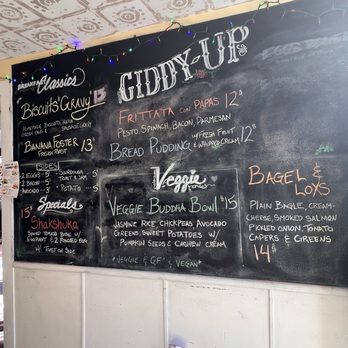 BREAKFAST Classics
Biscuits & Gravy
BANANA FOSTER 13
FRENCH TOAST
SIDES
2 EGGS 5
BACON 5
AVOCADO
SOURDOUGH
TOAST & JAM
POTATO
Specials
15 Shakshuka
SPICED TOMATO
W/ TOAST ON SIDE
GIDDY-UP
FRITTATA CON PAPAS 12
PESTO, SPINACH, BACON, PARMESAN
BREAD PUDDING W/ FRESH FRUIT & WHIPPED CREAM 12
Veggie
VEGGIE BUDDHA BOWL 15
JASMINE RICE, CHICKPEAS, AVOCADO
GREENS, SWEET POTATOES W/
PUMPKIN SEEDS & CASHEW CREAM
*VEGGIE & GF* & VEGAN*
BAGEL &
LOXS
PLAIN BAGLE, CREAM-
CHEESE, SMOKED SALMON
PICKED ONION, TOMATO
CAPERS & GREENS
14$